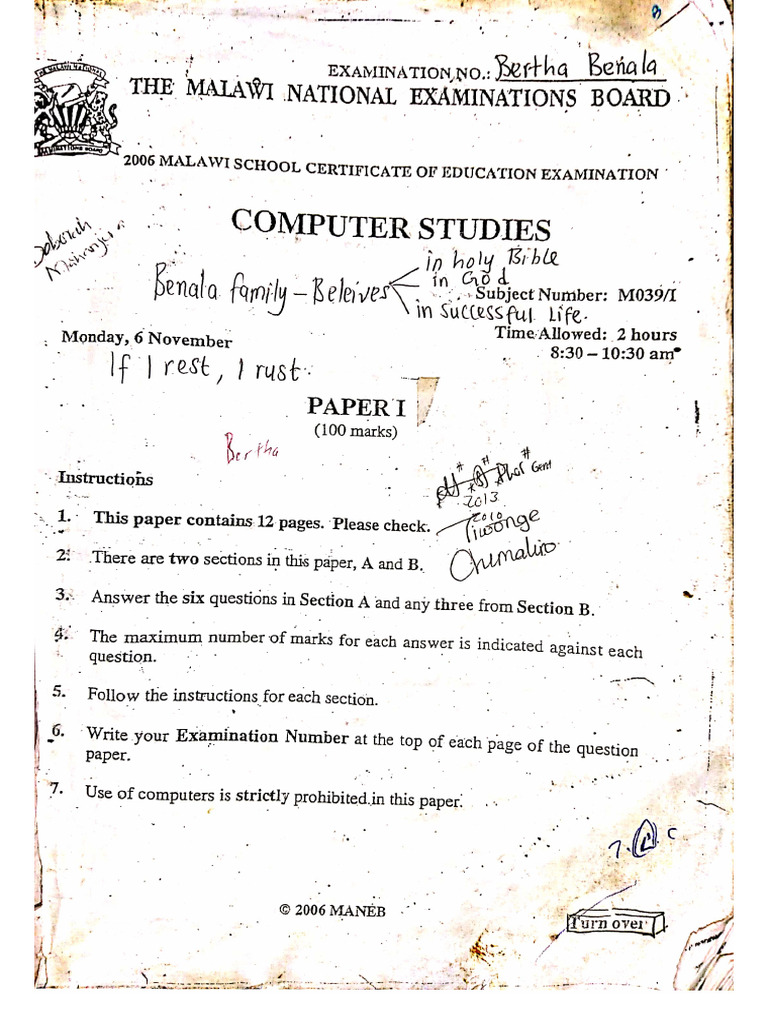 B
EXAMINATION NO.: Bertha Benala
THE MALAWI NATIONAL EXAMINATIONS BOARD
2006 MALAWI SCHOOL CERTIFICATE OF EDUCATION EXAMINATION
COMPUTER STUDIES
Deborah
in holy Bible
Benala family – Beleives
in God
Subject Number: M039/I
in successful Life.
Monday, 6 November
Time Allowed: 2 hours
8:30 – 10:30 am
If I rest, I rust.
PAPER I
(100 marks)
Bertha
Instructions
2013
2010
Tiwonge
Chumaliro
1. This paper contains 12 pages. Please check.
2. There are two sections in this paper, A and B.
3. Answer the six questions in Section A and any three from Section B.
4. The maximum number of marks for each answer is indicated against each
question.
5. Follow the instructions for each section.
6. Write your Examination Number at the top of each page of the question
paper.
7. Use of computers is strictly prohibited in this paper.
© 2006 MANEB
Turn over